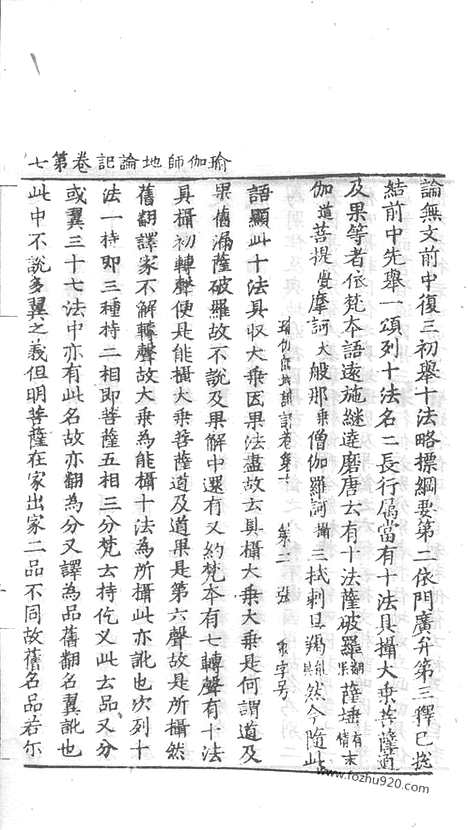 論無文前中復三初舉十法略標綱要第二依門廣弁第三釋已捴
結前中先舉一頌列十法名二長行屬當有十法具攝大乗菩薩道
及果等者依梵夲語遠施継達磨唐云有十法薩破羅翻果薩埵有情末
伽道菩提覺摩訶大般那乗僧伽羅訶攝三拭剌旦羯能然今隨此
瑜伽師地論記卷第七 第二張
語顯此十法具収大乗因果法盡故云具攝大乗大乗是何謂道及
果舊漏薩破羅故不說及果解中還有又約梵夲有七轉聲有十法
具攝初轉聲便是能攝大乗菩薩道及道果是第六聲故是所攝然
舊翻譯家不解轉聲故大乗為能攝十法為所攝此亦訛也次列十
法一持即三種持二相即菩薩五相三分梵云持仡叉此云品又分
或翼三十七法中亦有此名故亦翻為分又譯為品舊翻名翼訛也
此中不說多翼之義但明菩薩在家出家二品不同故舊名品若尓
瑜伽師地論記卷第七
www.fozhu920.com